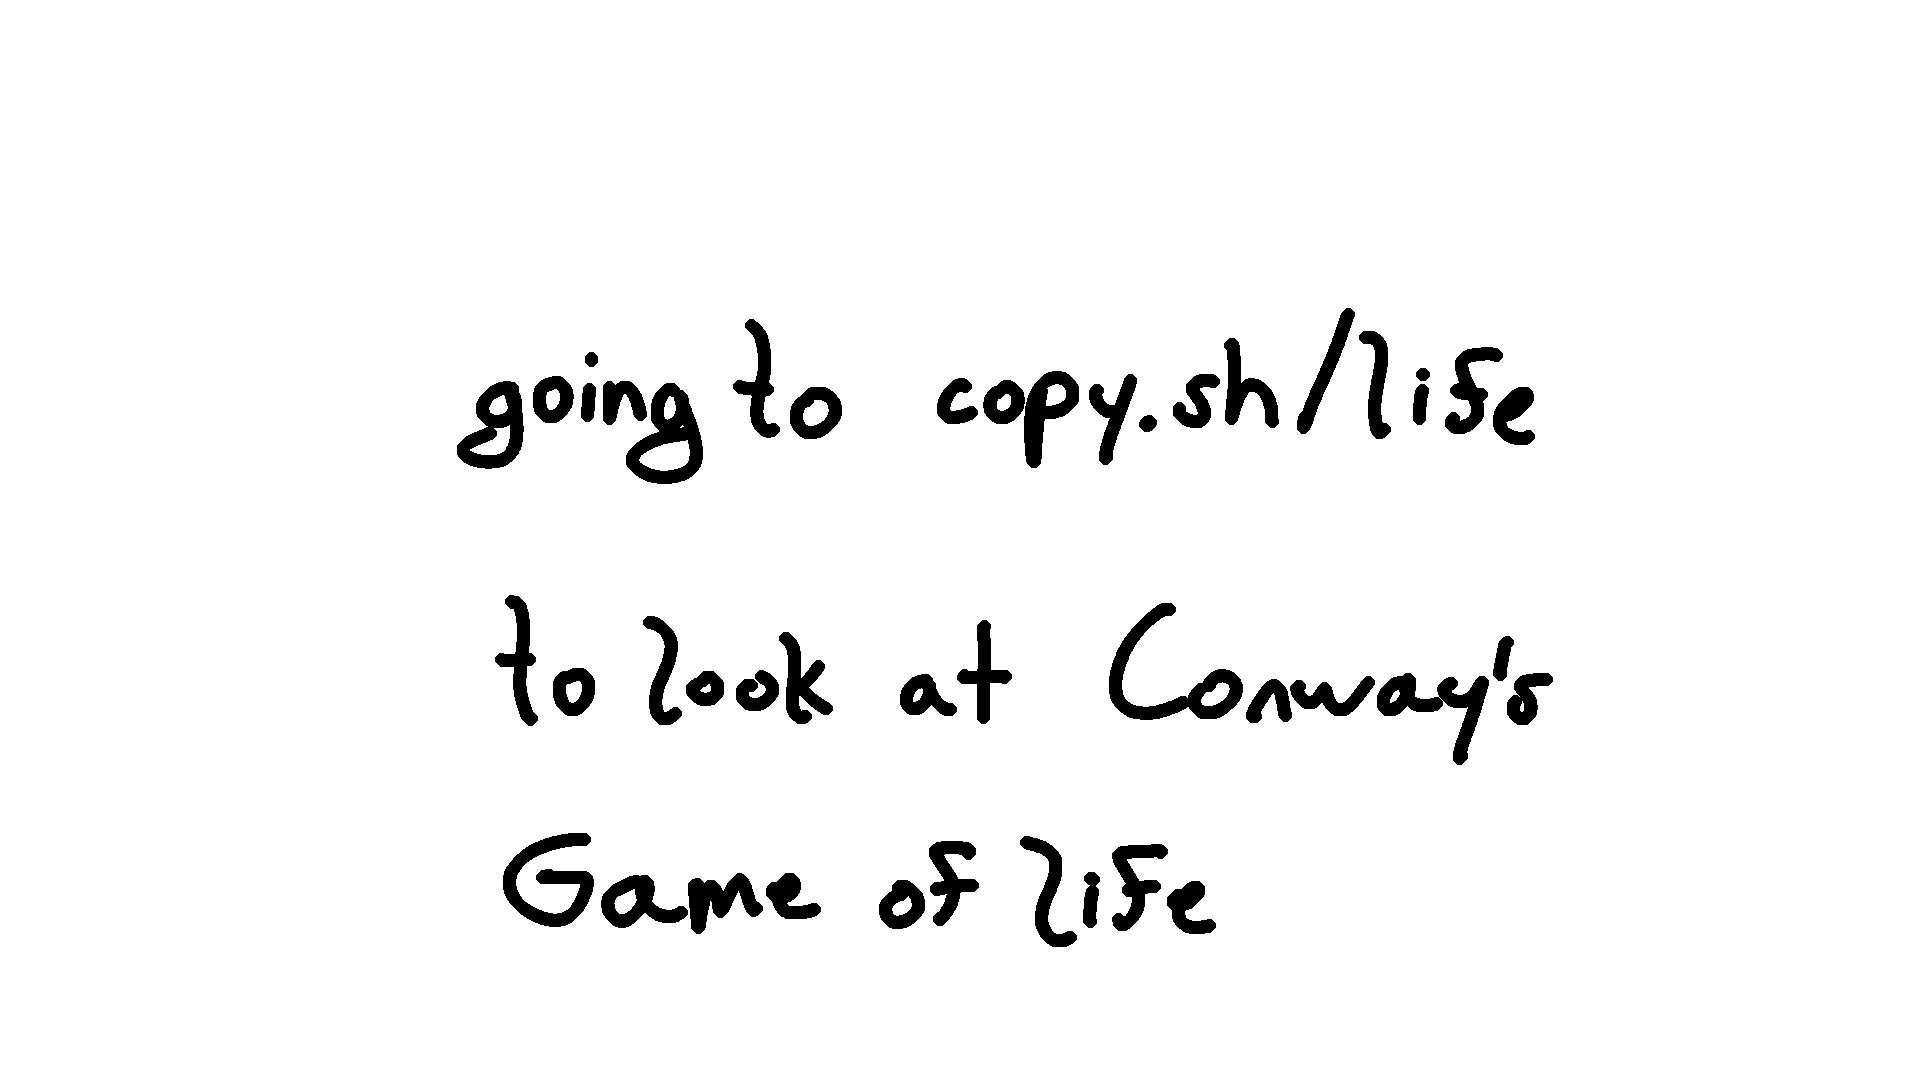 going to copy.sh/life
to look at Conway's
Game of life